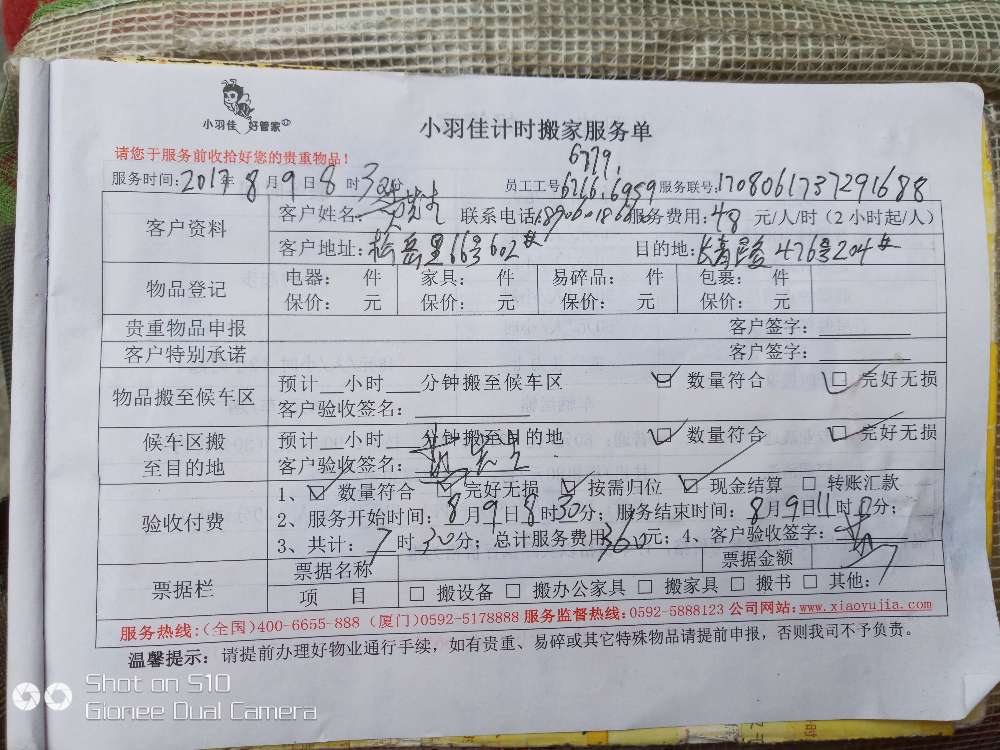 小羽佳 好管家
小羽佳计时搬家服务单
请您于服务前收拾好您的贵重物品！
6779.
服务时间：2017年8月9日8时30 员工工号6766.6959 服务联号：1708061737291688
客户资料 客户姓名： 联系电话： 服务费用：48 元/人/时（2小时起/人）
客户地址：松岳里66号602 目的地：长青 476号204
物品登记 电器： 件 家具： 件 易碎品： 件 包裹： 件
保价： 元 保价： 元 保价： 元 保价： 元
贵重物品申报 客户签字：
客户特别承诺 客户签字：
物品搬至候车区 预计 小时 分钟搬至候车区 数量符合 完好无损
客户验收签名：
候车区搬至目的地 预计 小时 分钟搬至目的地 数量符合 完好无损
客户验收签名：
验收付费 1、数量符合 完好无损 按需归位 现金结算 转账汇款
2、服务开始时间：8月9日8时30分；服务结束时间：8月9日11时0分；
3、共计：7时30分；总计服务费用360元；4、客户验收签字：
票据栏 票据名称 票据金额
项 目 搬设备 搬办公家具 搬家具 搬书 其他：
服务热线：(全国)400-6655-888 (厦门)0592-5178888 服务监督热线：0592-5888123 公司网站：www.xiaoyujia.com
温馨提示：请提前办理好物业通行手续，如有贵重、易碎或其它特殊物品请提前申报，否则我司不予负责。
Shot on S10
Gionee Dual Camera